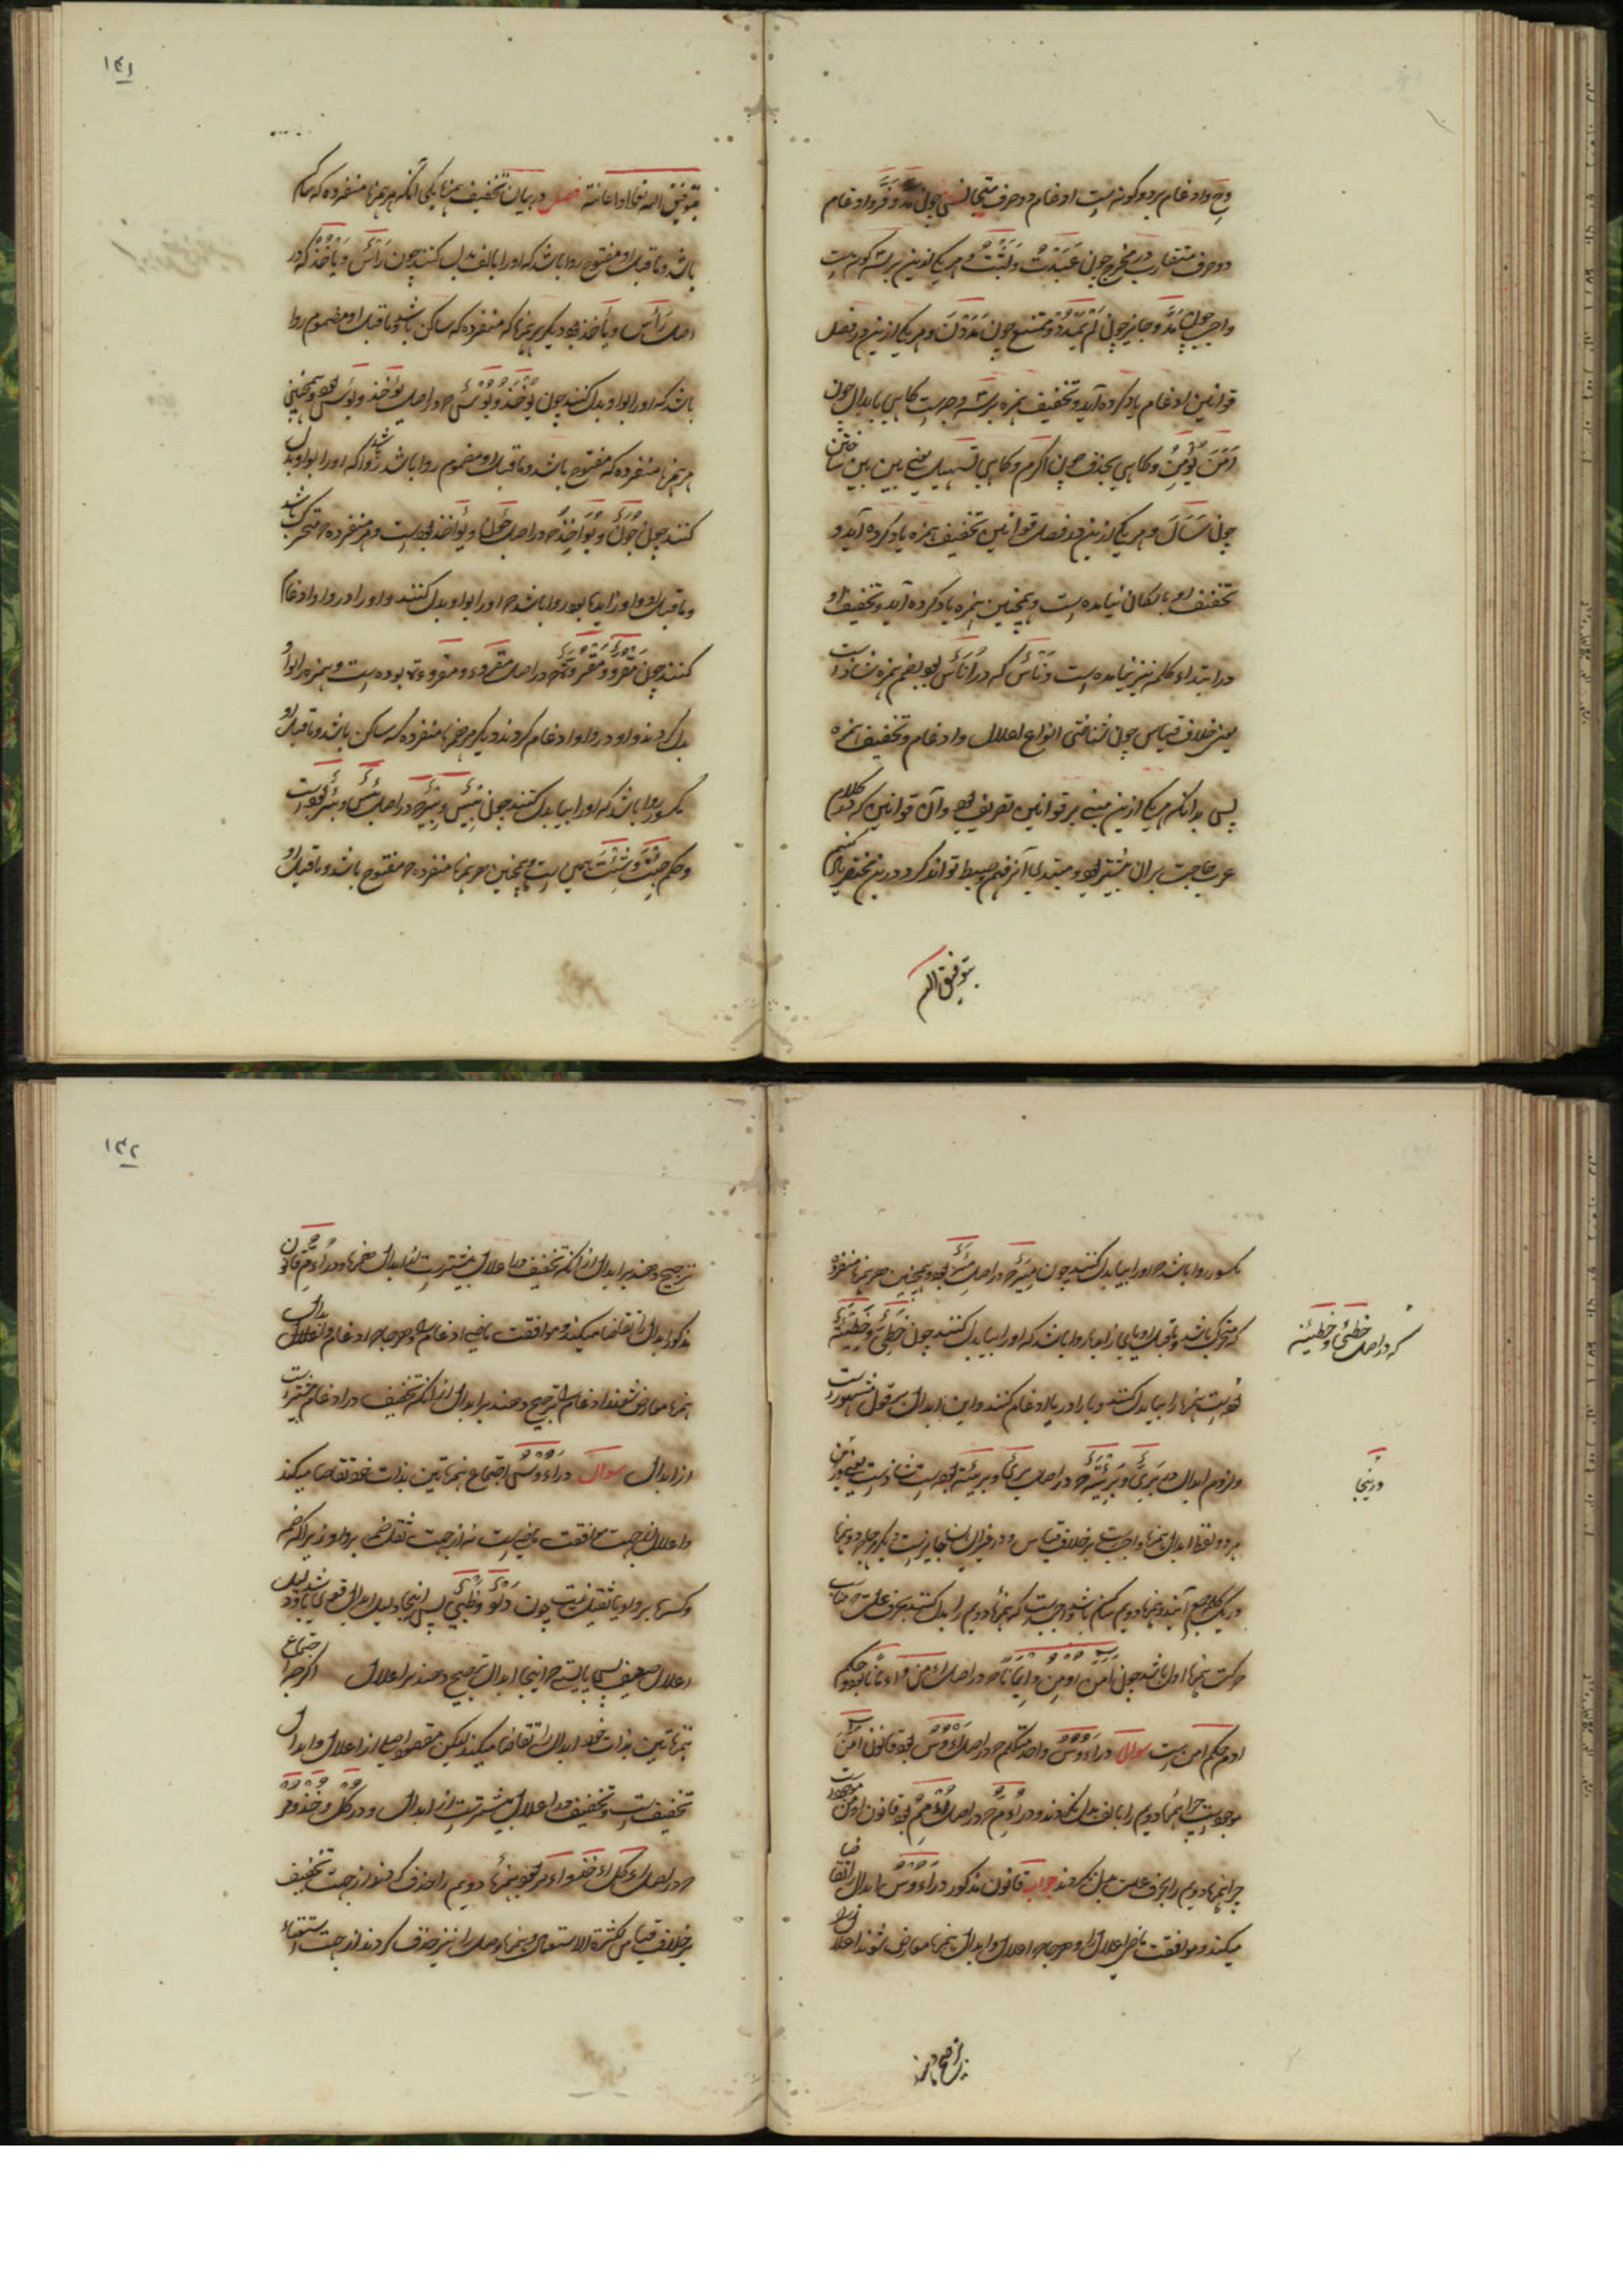 وح وادغام بر دو گونه است ادغام دو حرف متجانسین چون مَدَّ و فَرَّ و ادغام
دو حرف متقارب در مخرج چون عَبَدْتُ و لَبِثْتُ و هر یکی ازین بر سه گونه است
واجب چون مَدَّ و جایز چون لَمْ یَمْدُدْ و ممتنع چون مَدَدْنَ و هر یکی ازین در فصل
قوانین ادغام یاد کرده آید و تخفیف همزه بر سه وجه است گاهی بابدال چون
اٰمَنَ یُؤْمِنُ و گاهی بحذف چون اکرم و گاهی تسهیل یعنی بین بین ساختن
چون سَأَلَ و هر یکی ازین در فصل قوانین تخفیف همزه یاد کرده آید و
تخفیف او باسکان نیامده است و همچنین همزه یاد کرده آید و تخفیف او
در ابتداء کلمه نیز نیامده است و نَاسٌ که در اُنَاسٌ بود بضم همزه شاذ است
یعنی خلاف قیاس چون شناختی انواع اعلال و ادغام و تخفیف همزه
پس بدانکه هر یکی ازین مبنی بر قوانین تصریف بود و آن قوانین که در کلام
عرب حاجت بران بیشتر بود و مبتدی آنرا فهم و ضبط تواند کرد درین مختصر یاد کنیم
بتوفیق الله
۱۴۱
بتوفیق الله تعالی و اعانته فصل در بیان تخفیف همزها یکی آنکه هر همزها منفرده که ساکن
باشد و ماقبل او مفتوح روا باشد که او را بالف بدل کنند چون رَاسٌ و یَاخُذُ که در
اصل رَأس و یأخذ بود دیگر هر همزها که منفرده که ساکن باشد و ماقبل او مضموم روا
باشد که او را بواو بدل کنند چون یُوخَذُ و بُوسٌ که در اصل یُؤخذ و بُؤس بود و همچنین
هر همزها منفرده که مفتوح باشد و ماقبل او مضموم روا باشد که او را بواو بدل
کنند چون جُوَنٌ و یُوَاخِذُ که در اصل جُؤَن و یؤاخذ بوده است و هر منفرده که متحرک باشد
و ماقبل او واو زایدها بود روا باشد که او را بواو بدل کنند و او را در واو ادغام
کنند چون مَقْرُوٌّ و مَقْرُوَّةٌ که در اصل مقروء و مقروءة بوده است و همزه را بواو
بدل کردند و او در واو ادغام کردند دیگر هر همزها منفرده که ساکن باشد و ماقبل او
مکسور روا باشد که او را بیا بدل کنند چون بِیْسَ و بِیْرٌ که در اصل بئس و بئر بوده است
و حکم جِئْتَ و شِئْتَ همین است و همچنین هر همزها منفرده که مفتوح باشد و ماقبل او
مکسور روا باشد که او را بیا بدل کنند چون مِیَرٌ که در اصل مِئَر بود و همچنین هر همزها منفرده
که متحرک باشد و ماقبل او یای زاید باشد روا باشد که او را بیا بدل کنند چون خَطِیٌّ و خَطِیَّةٌ
که در اصل خطیئ و خطیئة
بوده است همزها را بیا بدل کنند و یا را در یا ادغام کنند و این ابدال بر قول مشهور است
و لزوم ابدال در بَرِیٌّ و بَرِیَّةٌ که در اصل بریئ و بریئة بوده است شاذ است یعنی درین
درینجا
هر دو لفظ ابدال همزها واجب است بر خلاف قیاس و در غیر ایشان جایز است دیگر هر جا که دو همزها
در یک کلمه جمع آیند و همزها دویم ساکن باشد واجب است که همزها دویم را بدل کنند بحرف علت مناسب
حرکت همزها اول باشد چون اٰمَنَ اُوْمِنَ و اِیْمَانًا که در اصل ءَامن ... بود و حکم
ادم حکم امن است سوال در اَءُوْسُ واحد متکلم که در اصل اَءْوُسُ بود قانون اٰمَنَ
موجود است چرا همزها دویم را بالف بدل نکردند و در اَءُمُّ که در اصل ... بود قانون اومن موجود است
چرا همزها دویم را بحرف علت بدل نکردند جواب قانون مذکور در اَءُوْسُ ابدال را تقاضا
میکند و موافقت ماضی اعلال را و هر جا که اعلال و ابدال همزها معارض شوند اعلال را
ترجیح دهند
۱۴۲
ترجیح دهند بر ابدال از آنکه تخفیف در اعلال بیشتر است از ابدال همزها و در اَءُمُّ قانون
مذکور ابدال را تقاضا میکند و موافقت ماضی ادغام را و هر جا که ادغام و ابدال
همزها معارض شوند ادغام را ترجیح دهند بر ابدال از آنکه تخفیف در ادغام بیشتر است
از ابدال سوال در اَءُوْسُ اجتماع همزتین بذات خود تقاضا میکند
و اعلال از جهت موافقت ماضی است نه از جهت ثقل ضمه بر واو زیرا که ضمه
و کسره بر واو یا ثقیل نیست چون دَلْوٌ و ظَبْیٌ پس اینجا دلیل ابدال قوی باشد و دلیل
اعلال ضعیف پس بایستی که اینجا ابدال ترجیح دهند بر اعلال اگرچه اجتماع
همزتین بذات خود ابدال را تقاضا میکند لیکن مقصود اصلی از اعلال و ابدال
تخفیف است و تخفیف در اعلال بیشتر است از ابدال و در کُلْ و خُذْ و مُرْ
که در اصل اءکل اءخذ و اءمر بود همزها دویم را حذف کردند از جهت تخفیف
بر خلاف قیاس لکثرة الاستعمال و همزها وصل را نیز حذف کردند از جهت استغناء